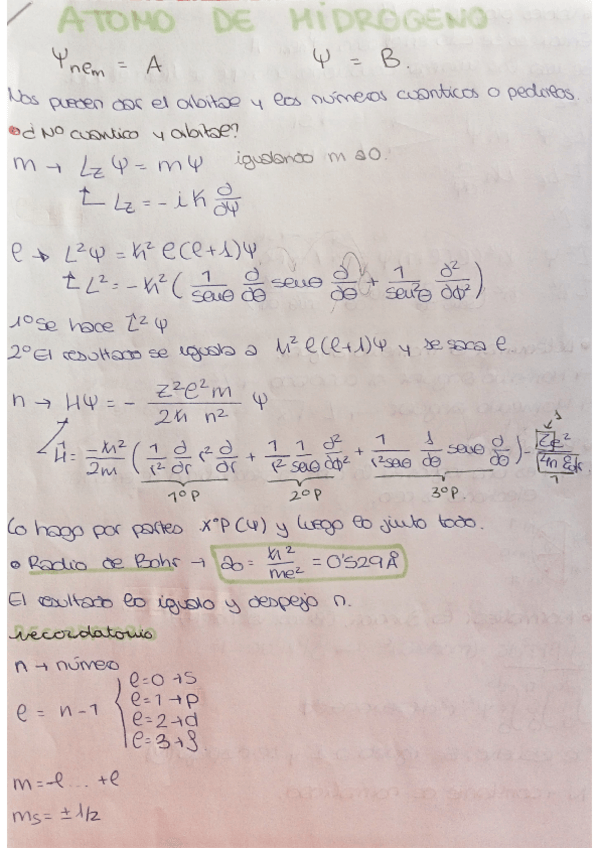 ATOMO DE HIDRÓGENO
Ψnem = A Ψ = B.
Nos pueden dar el orbital y los números cuánticos o pedirlos.
• ¿Nº cuantico y orbital?
m → LzΨ = mΨ igualando m a 0.
Lz = -iħ d/dφ
l → L²Ψ = ħ² l(l+1)Ψ
L² = -ħ² ( 1/senθ d/dθ senθ d/dθ + 1/sen²θ d²/dΦ² )
1º Se hace L̂²Ψ
2º El resultado se iguala a ħ² l(l+1)Ψ y se saca l
n → HΨ = - z²e²m/2ħ n² Ψ
Ĥ = -ħ²/2m ( 1/r² d/dr r² d/dr + 1/r² 1/senθ d²/dΦ² + 1/r²senθ d/dθ senθ d/dθ ) - Ze²/4πεor
1
1
1ºP 2ºP 3ºP.
Lo hago por partes XºP(Ψ) y luego lo junto todo.
• Radio de Bohr → ao = ħ²/me² = 0'529Å
El resultado lo igualo y despejo n.
recordatorio
n → número
l = n-1
l=0→s
l=1→p
l=2→d
l=3→f
m = -l ... +l
ms = ±1/2